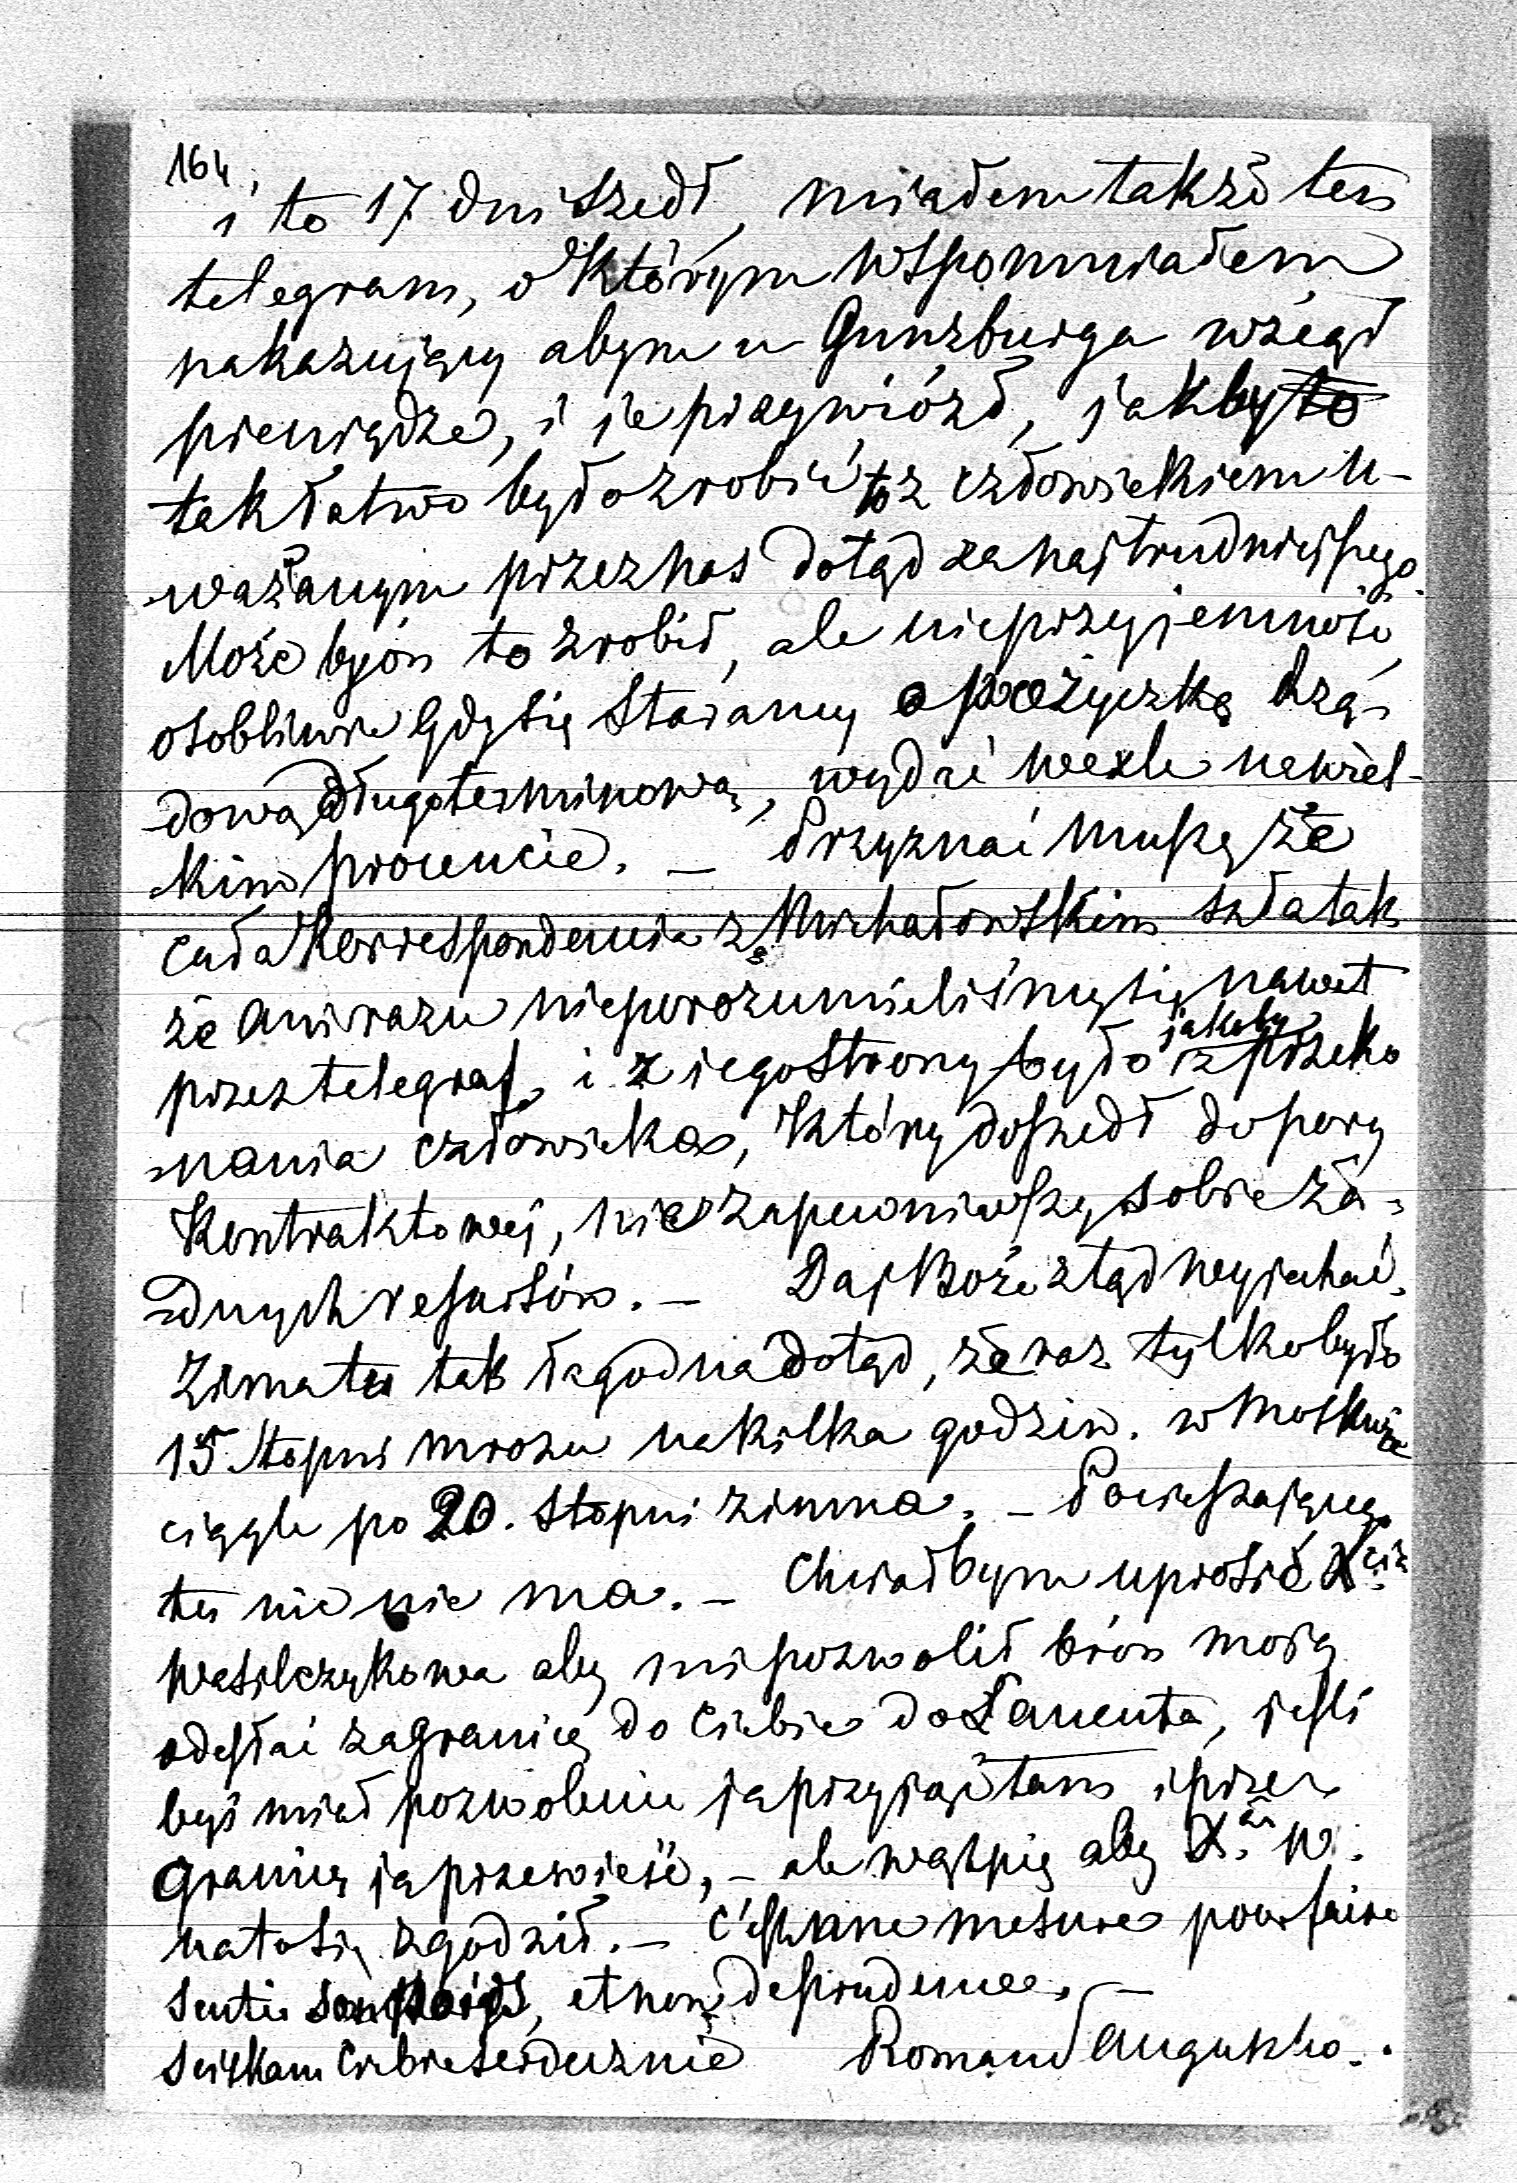 164
i to 17 dni szedł, miałem także ten
telegram, o którym wspomniałem
nakazujący abym u Gunzburga wziął
pieniądze, i je przywiózł, jakby to
tak łatwo było zrobić to z człowiekiem u-
ważanym przez nas dotąd za najtrudniejszego.
Może byłon to zrobił, ale nieprzyjemność
osobliwie gdy się staramy o pożyczkę rzą-
dową długoterminową, wydać wexle na wiel-
kim procencie. – Przyznać muszę że
cała korrespondencia z Michałowskim szła tak
że ani razu nieporozumieliśmy się nawet
przez telegraf, i z jego strony było jakoby z przeko
nania człowieka, który doszedł do pory
kontraktowej, nie zapewniwszy sobie ża-
dnych resursów. – Daj Boże ztąd wyjechać,
zima tu tak łagodna dotąd, że raz tylko było
15 stopni mrozu na kilka godzin. w Moskwie
ciągle po 20. stopni zimna. – Pocieszającego
tu nic nie ma. – Chciałbym uprosić Xcia
Wasilczykowa aby mi pozwolił broń moją
odesłać zagranicę do Ciebie do Łancuta, jesli
byś miał pozwolenie ją przyjąć tam i przez
granicę ją przewieść, – ale wątpię aby X. W.
na to się zgodził. – C'est une mesure pour faire
sentir son poids, et non de prudence. –
Sciskam Ciebie serdecznie Roman Sanguszko.